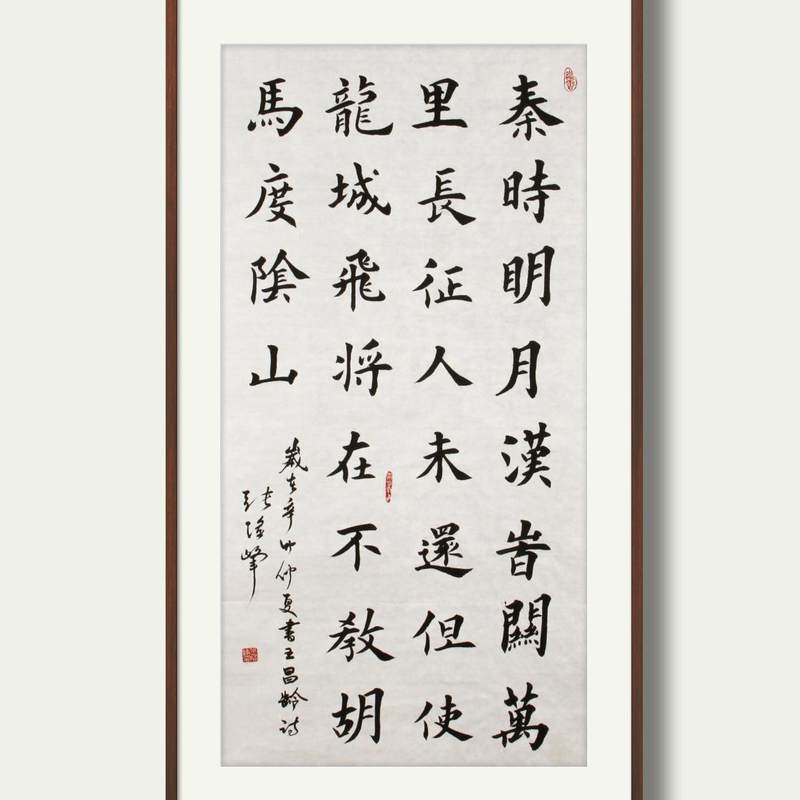 秦時明月漢旹關萬
里長征人未還但使
龍城飛将在不教胡
馬度陰山
歲在辛卯仲夏書王昌齡詩